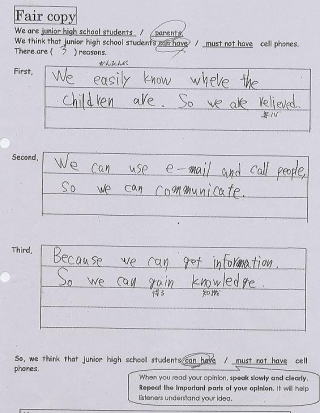 Fair copy
We are junior high school students / parents.
We think that junior high school students can have / must not have cell phones.
There are ( 3 ) reasons.
First,
We easily know where the
children are. So we are relieved.
Second,
We can use e-mail and call people,
So we can communicate.
Third,
Because we can get information.
So we can gain knowledge.
So, we think that junior high school students can have / must not have cell
phones.
When you read your opinion, speak slowly and clearly.
Repeat the important parts of your opinion. It will help
listeners understand your idea.